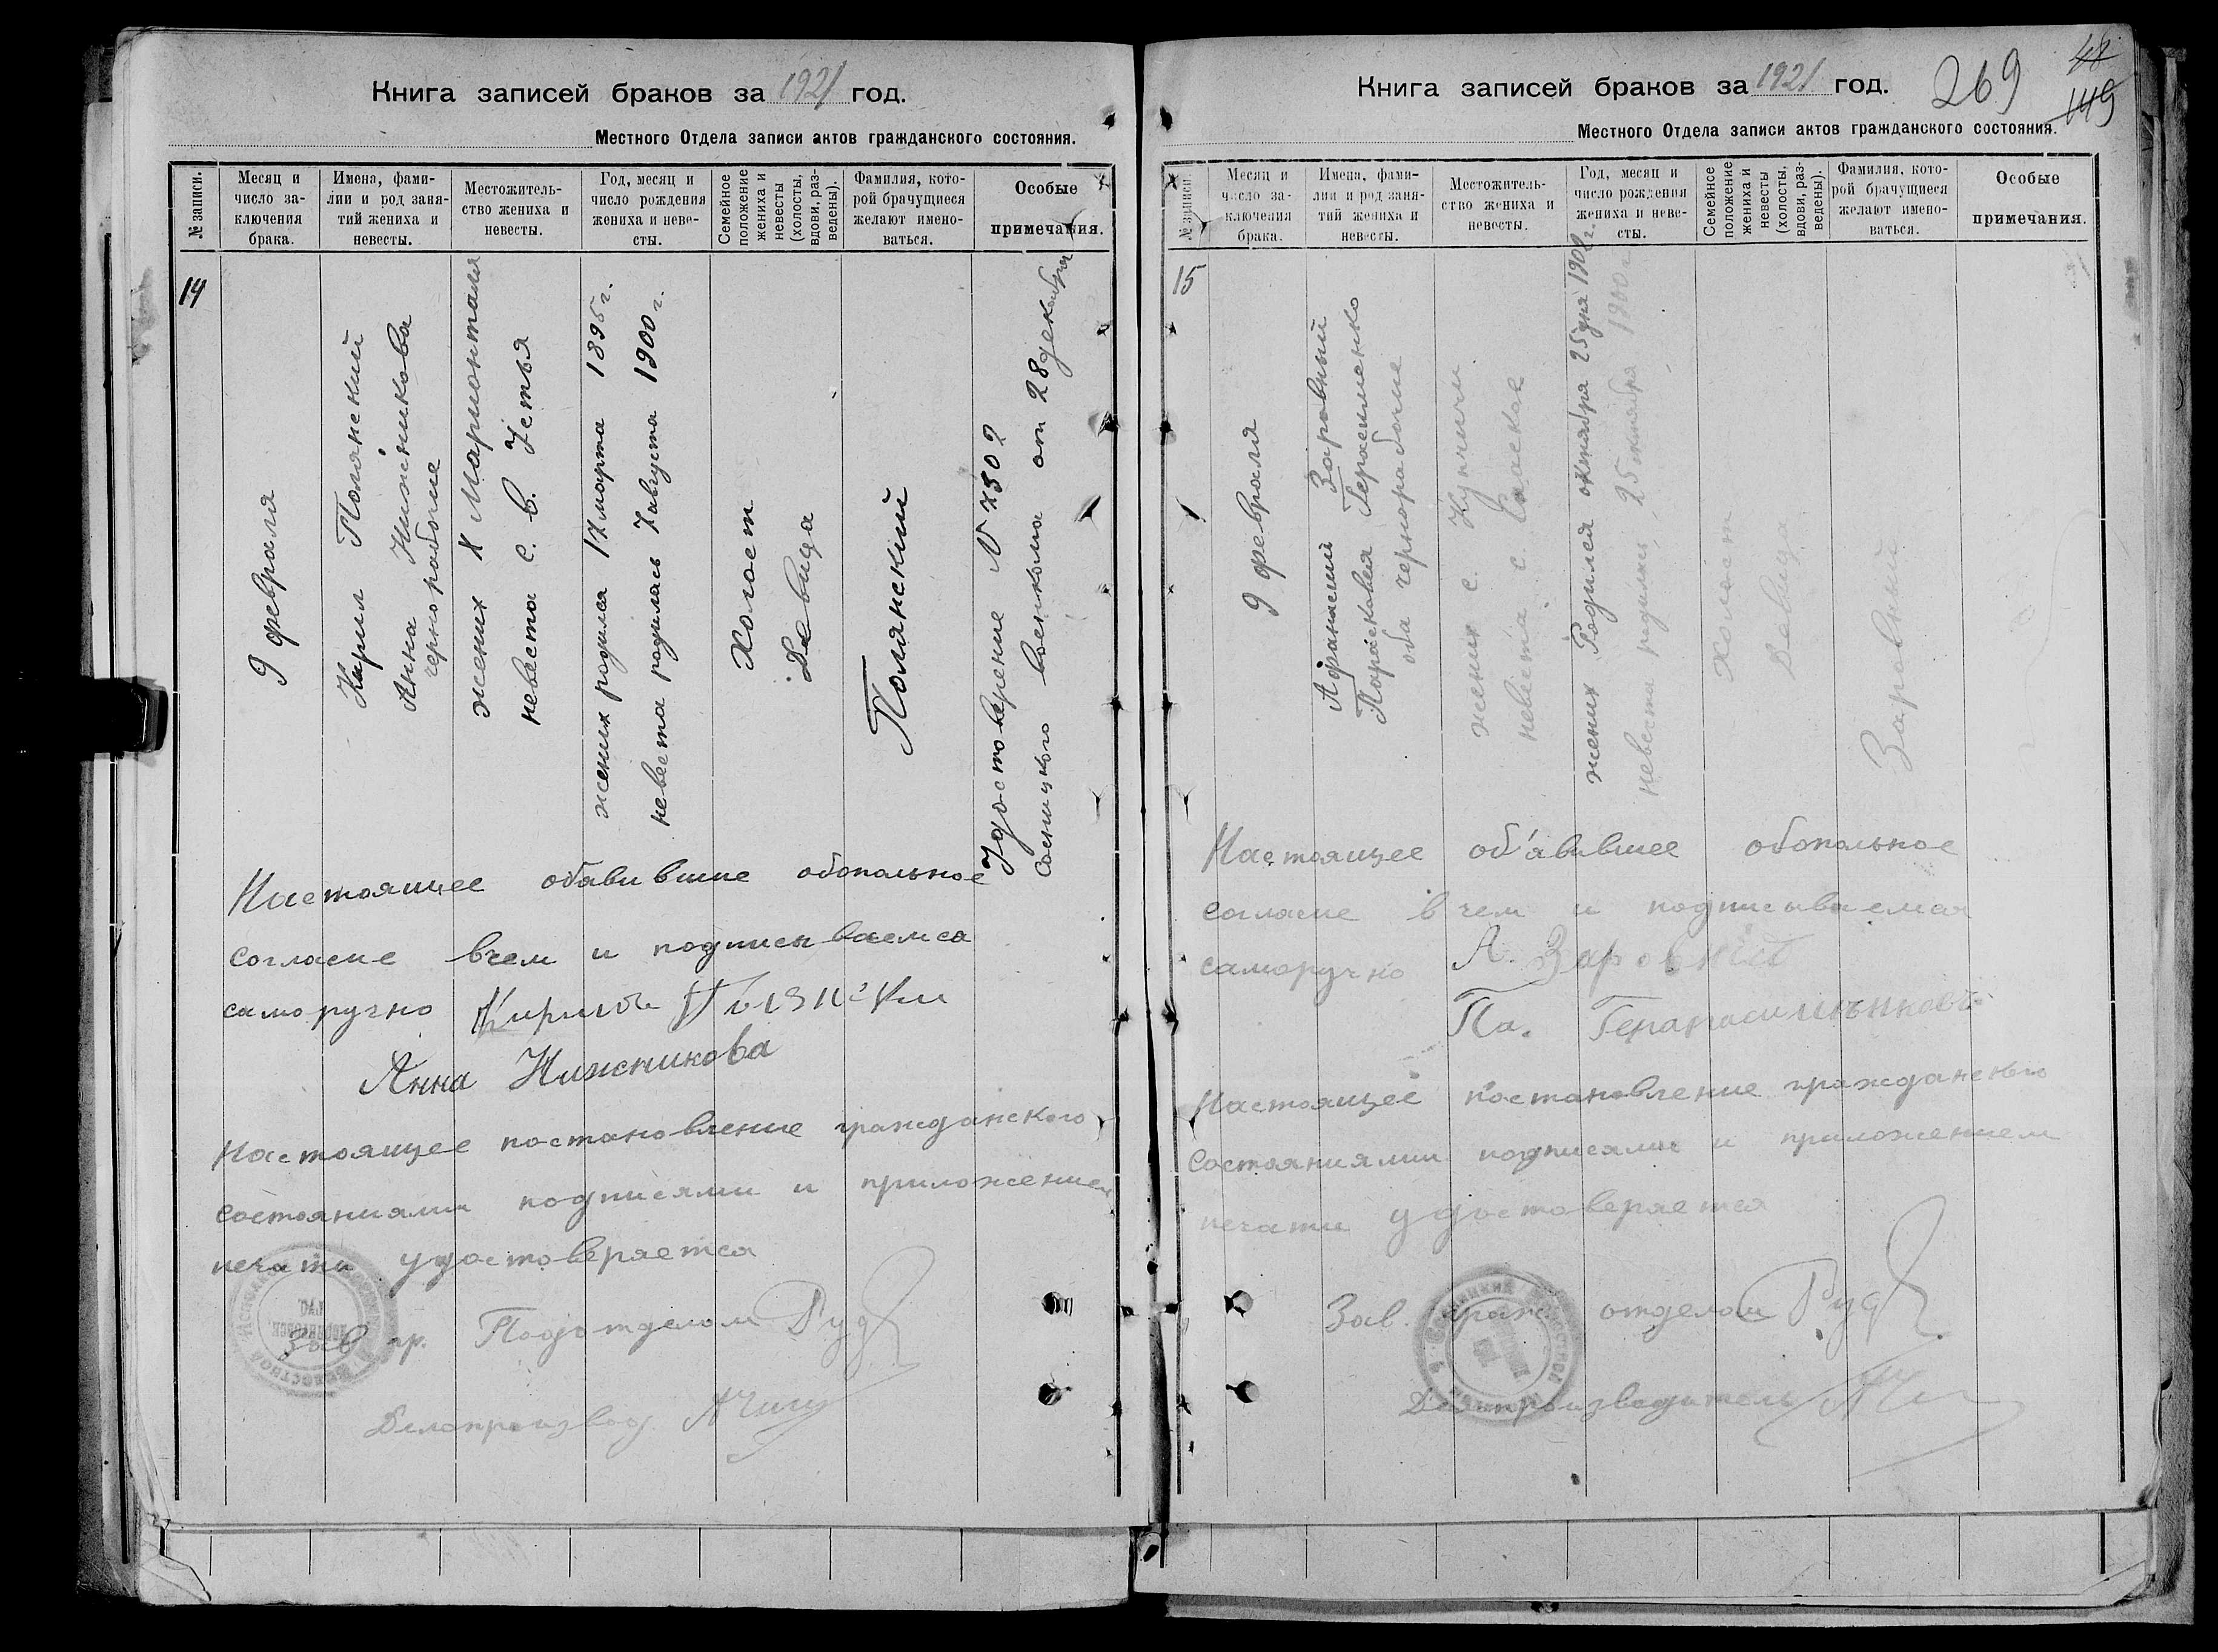 Книга записей браков за 1921 год.
Местного Отдела записи актов гражданского состояния.
№ записи.
Месяц и число заключения брака.
Имена, фамилии и род занятий жениха и невесты.
Местожительство жениха и невесты.
Год, месяц и число рождения жениха и невесты.
Семейное положение жениха и невесты (холосты, вдовы, разведены).
Фамилия, которой брачущиеся желают именоваться.
Особые примечания.
14
9 февраля
Кирил Полянский
Анна Нижникова
чернорабочие
жених х Марионталя
невеста с. В. Устья
жених родился 17 марта 1895 г.
невеста родилась 7 августа 1900 г.
Холост
Девица
Полянский
Удостоверение № 7502
Сосницкого военкома от 28 декабря
Настоящее обавившие обопольное
согласие вчем и подписываемса
саморучно Кирилъ
Анна Нижникова
Настоящее постановление гражданского
состояниями подписями и приложением
печати удостоверяется
Зав гр. Подотделом Руд
Делопроизвод
Книга записей браков за 1921 год.
269
48
149
Местного Отдела записи актов гражданского состояния.
№ записи.
Месяц и число заключения брака.
Имена, фамилии и род занятий жениха и невесты.
Местожительство жениха и невесты.
Год, месяц и число рождения жениха и невесты.
Семейное положение жениха и невесты (холосты, вдовы, разведены).
Фамилия, которой брачущиеся желают именоваться.
Особые примечания.
15
9 февраля
Афанасий Заровный
Парасковея Герасименко
оба чернорабочие
жених с. Купчичи
невеста с. Спаское
жених Родился октября 25 дня 1901 г.
невеста родилась 25 октября 1900 г.
Холост
Девица
Заровный
Настоящее об'явившее обопольное
согласие в чем и подписываемая
саморучно А. Заровный
Па.
Настоящее постановление гражданского
состояниями подписями и приложением
печати удостоверяется
Зав. граж. отделом Руд
Делопроизводитель